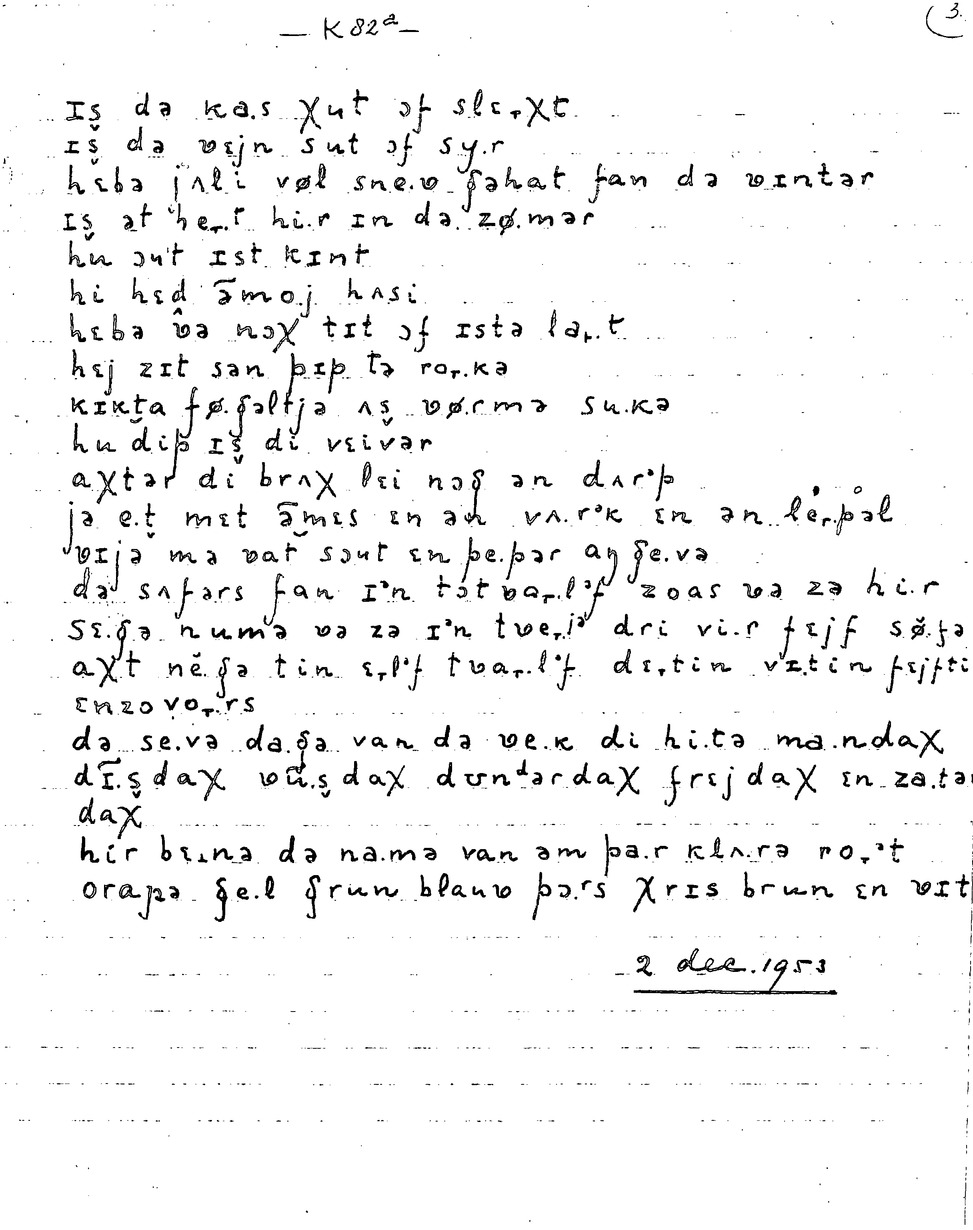 — K 82ª —
3.
ɪš də kɑ.s χut ɔf slɛ.χt
ɪš də ʋɛjn sut ɔf sy.r
hɛbə jʌli vøl sne.ʋ ɣəhat fan də ʋɪntər
ɪš ət he.t hi.r ɪn də zø.mər
hu ɔut ɪst kɪnt
hi hɛd ə̄moj hʌsi
hɛbə ʋə nɔχ tɪt ɔf ɪstə la.t
hɛj zɪt sən pɪp tə ro.kə
kɪktə fø.ɣəltjə ʌš ʋø.rmə su.kə
hu dip ɪš di vɛivər
aχtər di brʌχ lɛi nɔɣ ən dʌrᵊp
jə e.t mɛt ə̄mɛs ɛn ən vʌ.rᵊk ɛn ən le.pəl
ʋɪjə mə ʋat sɔut ɛn pe.pər aŋ ɣe.və
də sʌfərs fan ɪᵊn tɔt ʋa.lᵊf zoas ʋə zə hi.r
sɛ.ɣə numə ʋə zə ɪᵊn tʋe.jə dri vi.r fɛjf sø.fə
aχt ne.ɣə tin ɛ.lᵊf tʋa.lᵊf dɛ.tin vɪ.tin fɛjfti
ɛnzovo.rs
də se.və da.ɣə van də ʋe.k di hi.tə ma.ndaχ
dī.šdaχ ʋū.šdaχ dʊndərdaχ frɛjdaχ ɛn za.tər
daχ
hir bɛ.nə də na.mə van əm pa.r klʌ.rə ro.ᵊt
oraɲə ɣe.l ɣrun blauʋ pə.rs χrɪs brun ɛn ʋɪt
2 dec. 1953